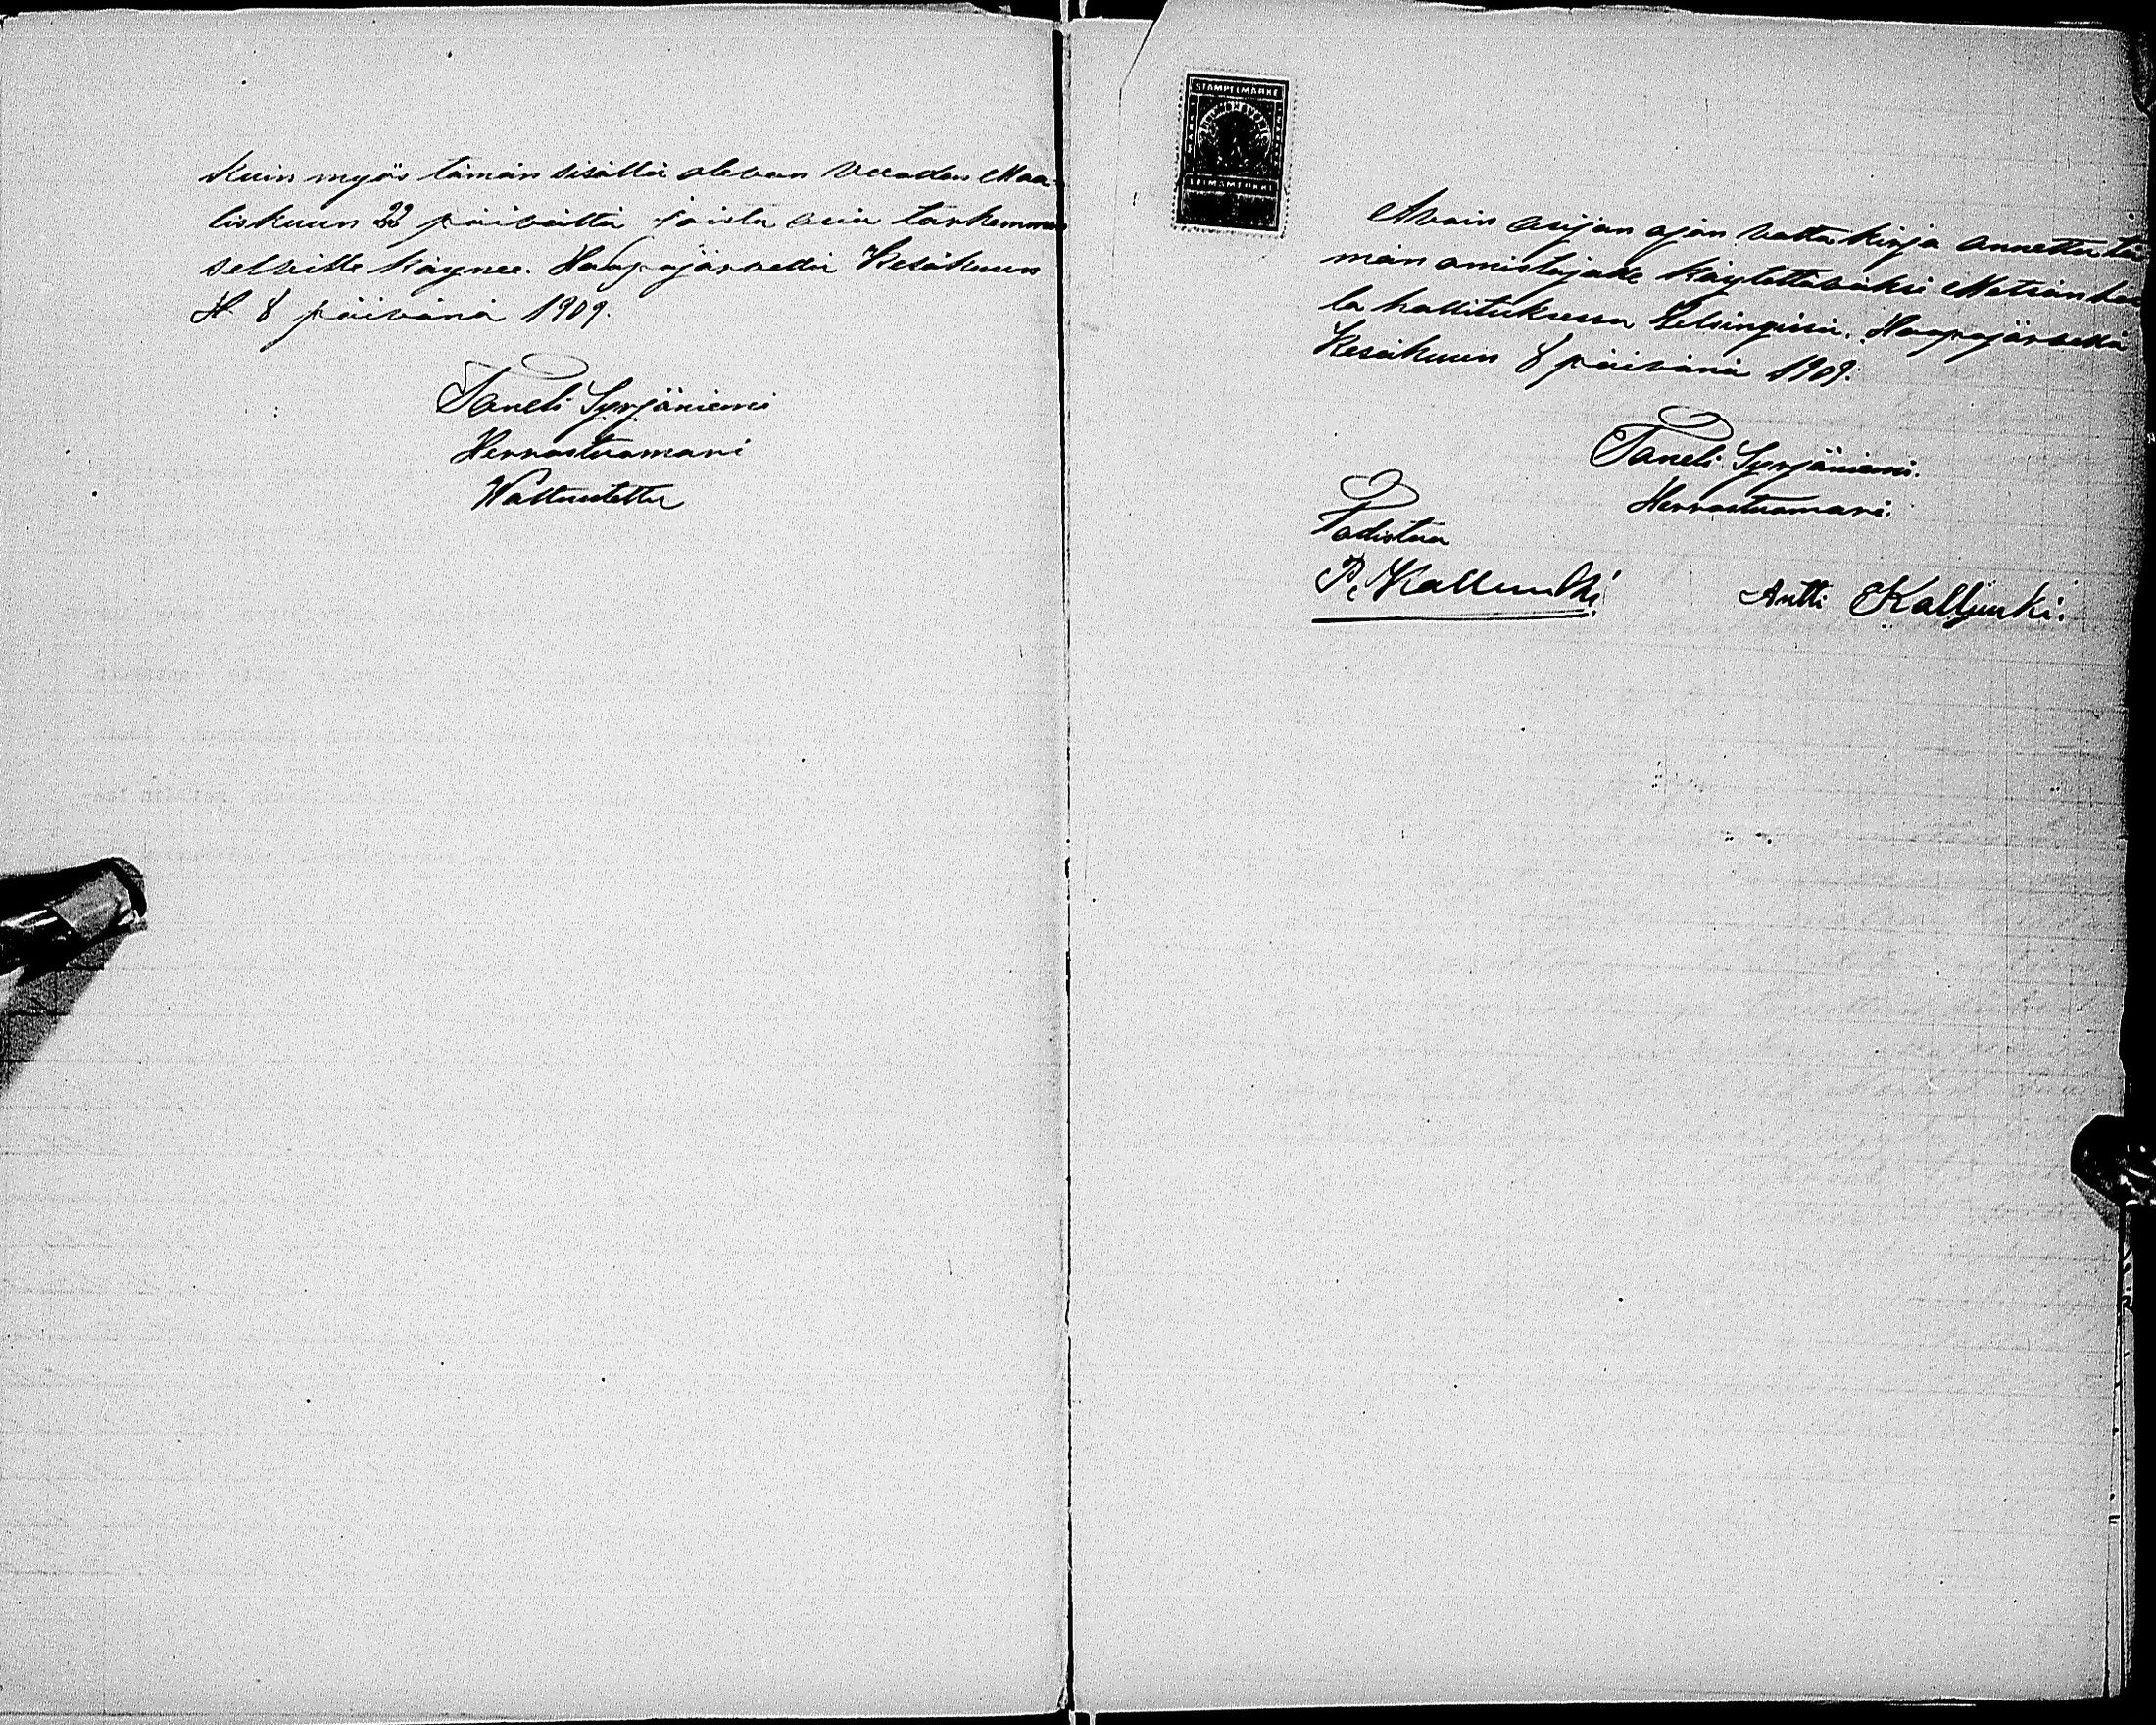 Kuin myös tämän sisällä olevan vuoden Maa-
liskuun 22 päivältä joista asia tarkemmin
selville käynee. Haapajärvellä Kesäkuun
H. 8 päivänä 1909.
Taneli Syrjäniemi
Herrastuomari
Waltuutettu
STAMPELMARKE
LEIMAMERKKI
Avoin asijan ajan valta kirja annettu tä-
män omistajalle käytettäväksi Metsänhoi
la hallituksessa Helsingissä. Haapajärvellä
Kesäkuun 8 päivänä 1909.
Taneli Syrjäniemi.
Herrastuomari.
Todistaa
P. Kallunki.
Antti Kallunki.